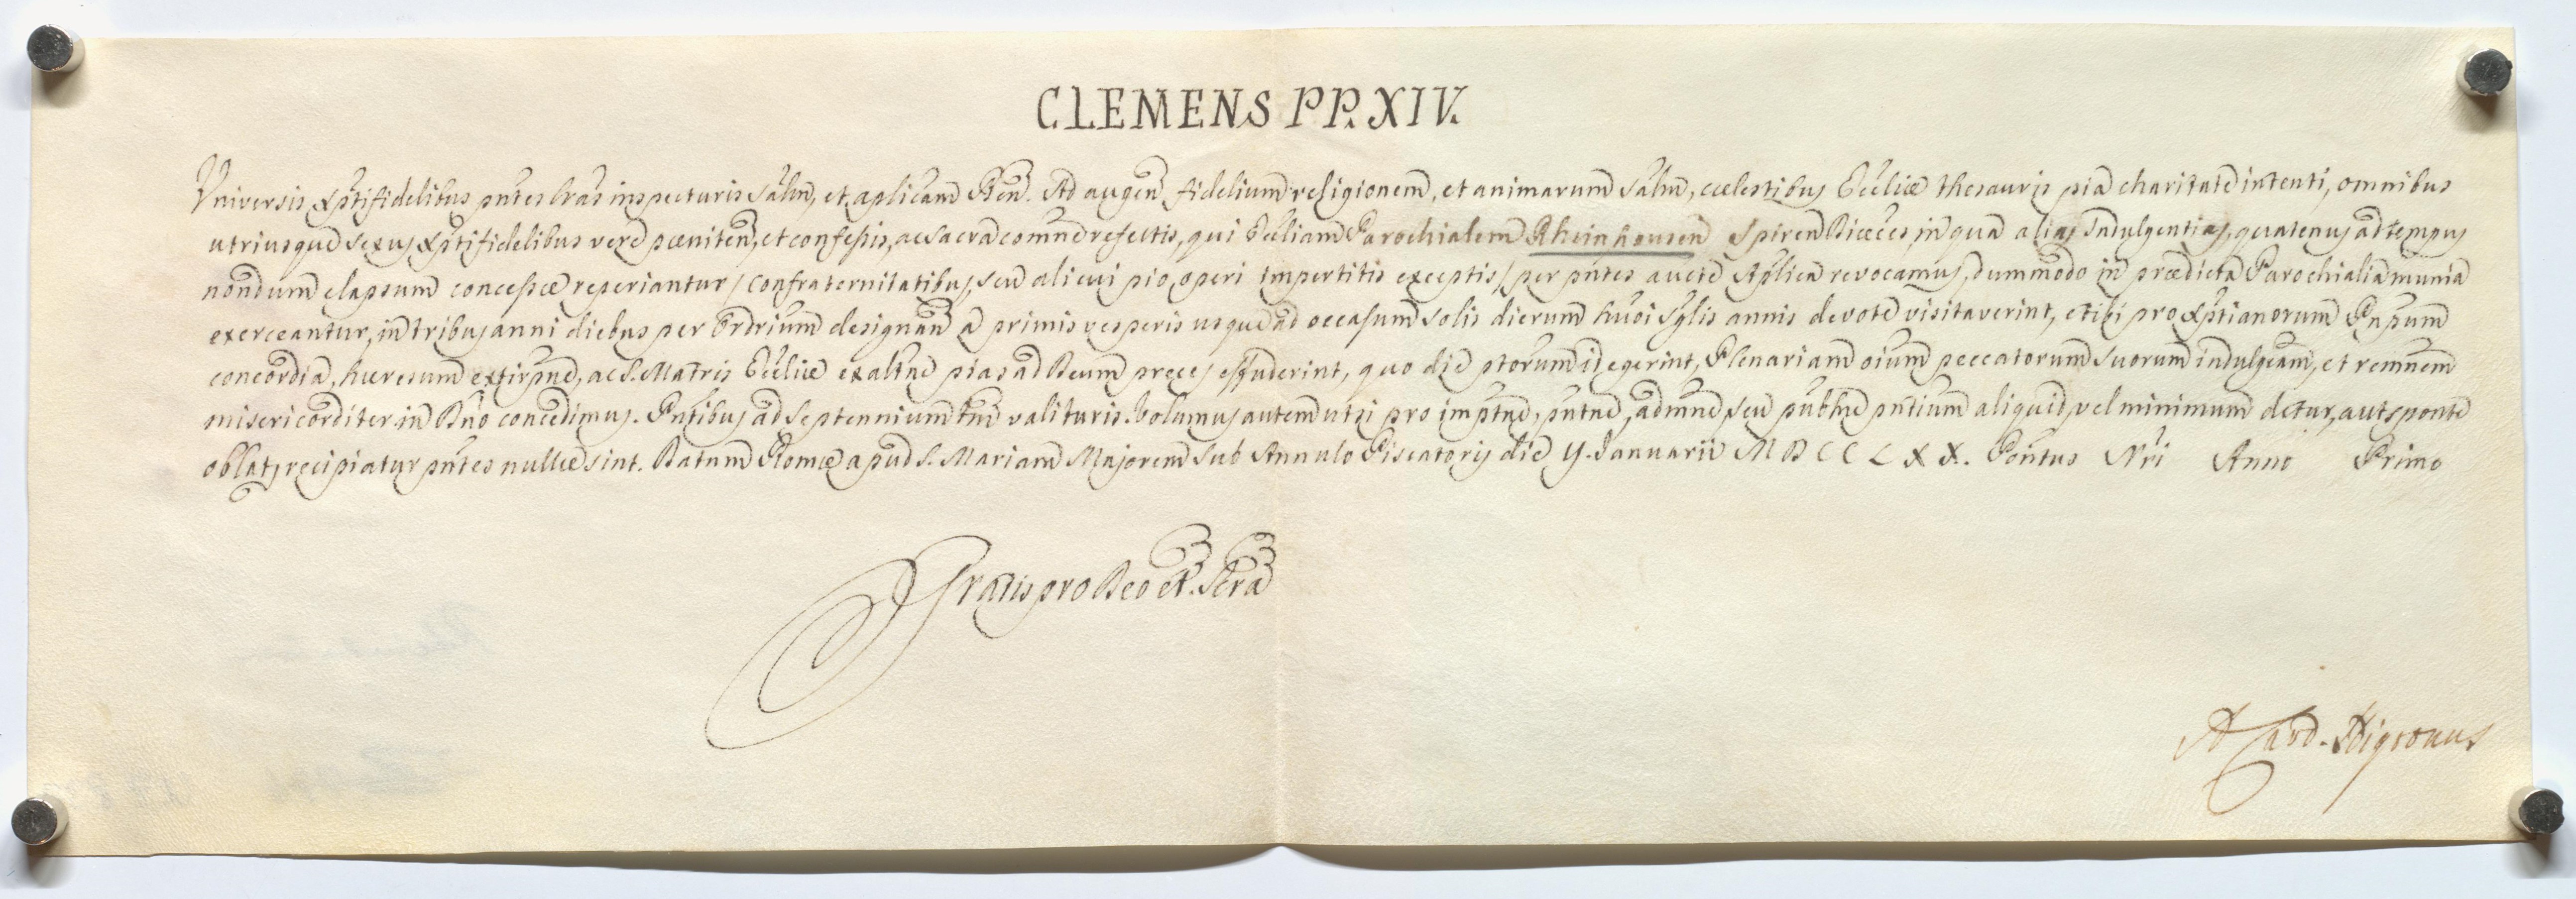 CLEMENS PP. XIV.
Universis Xptifidelibus pntes lras inspecturis Salm, et aplicam Ben. Ad augen fidelium religionem, et animarum salm, cælestibus Ecclıæ thesauris pia charitate intenti, omnibus
utriusque sexus Xptifidelibus vere pœniten, et confessis, ac sacra comne refectis, qui Ecclıam Parochialem Rheinhousen Spiren Diœces, in qua alias Indulgentias, quatenus ad tempus
nondum elapsum concessæ reperiantur / confraternitatibus, seu alicui pio operi impertitis exceptis / per pntes aucte Aplica revocamus, dummodo in prædicta Parochialia munia
exerceantur, in tribus anni diebus per Ordrium designan a primis vesperis usque ad occasum solis dierum huoi sglis annis devote visitaverint, et ibi pro Xptianorum Pnpum
concordia, hæresum extirpne, ac S. Matris Ecclıæ exaltne pias ad Deum preces effuderint, quo die ptorum id egerint, Plenariam oium peccatorum suorum indulgeam, et remnem
misericorditer in Dno concedimus. Pntibus ad septennium tm valituris. Volumus autem ut si pro imptne, pntne, admne, seu publne pntium aliquid vel minimum detur, aut sponte
oblat, recipiatur pntes nullæ sint. Datum Romæ apud S. Mariam Majorem sub Annulo Piscatoris die Januarii MDCCLXX. Pontus Nri Anno Primo
Gratis pro Deo et Scra
A Card. Nigronus